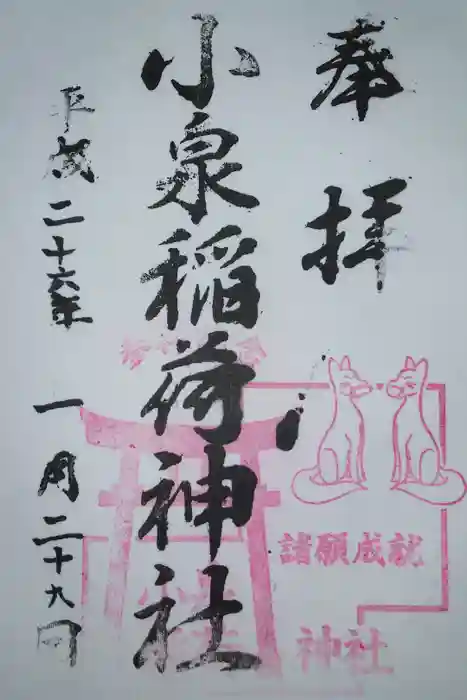 奉拝
小泉稲荷神社
平成二十六年 一月二十九日
諸願成就
神社